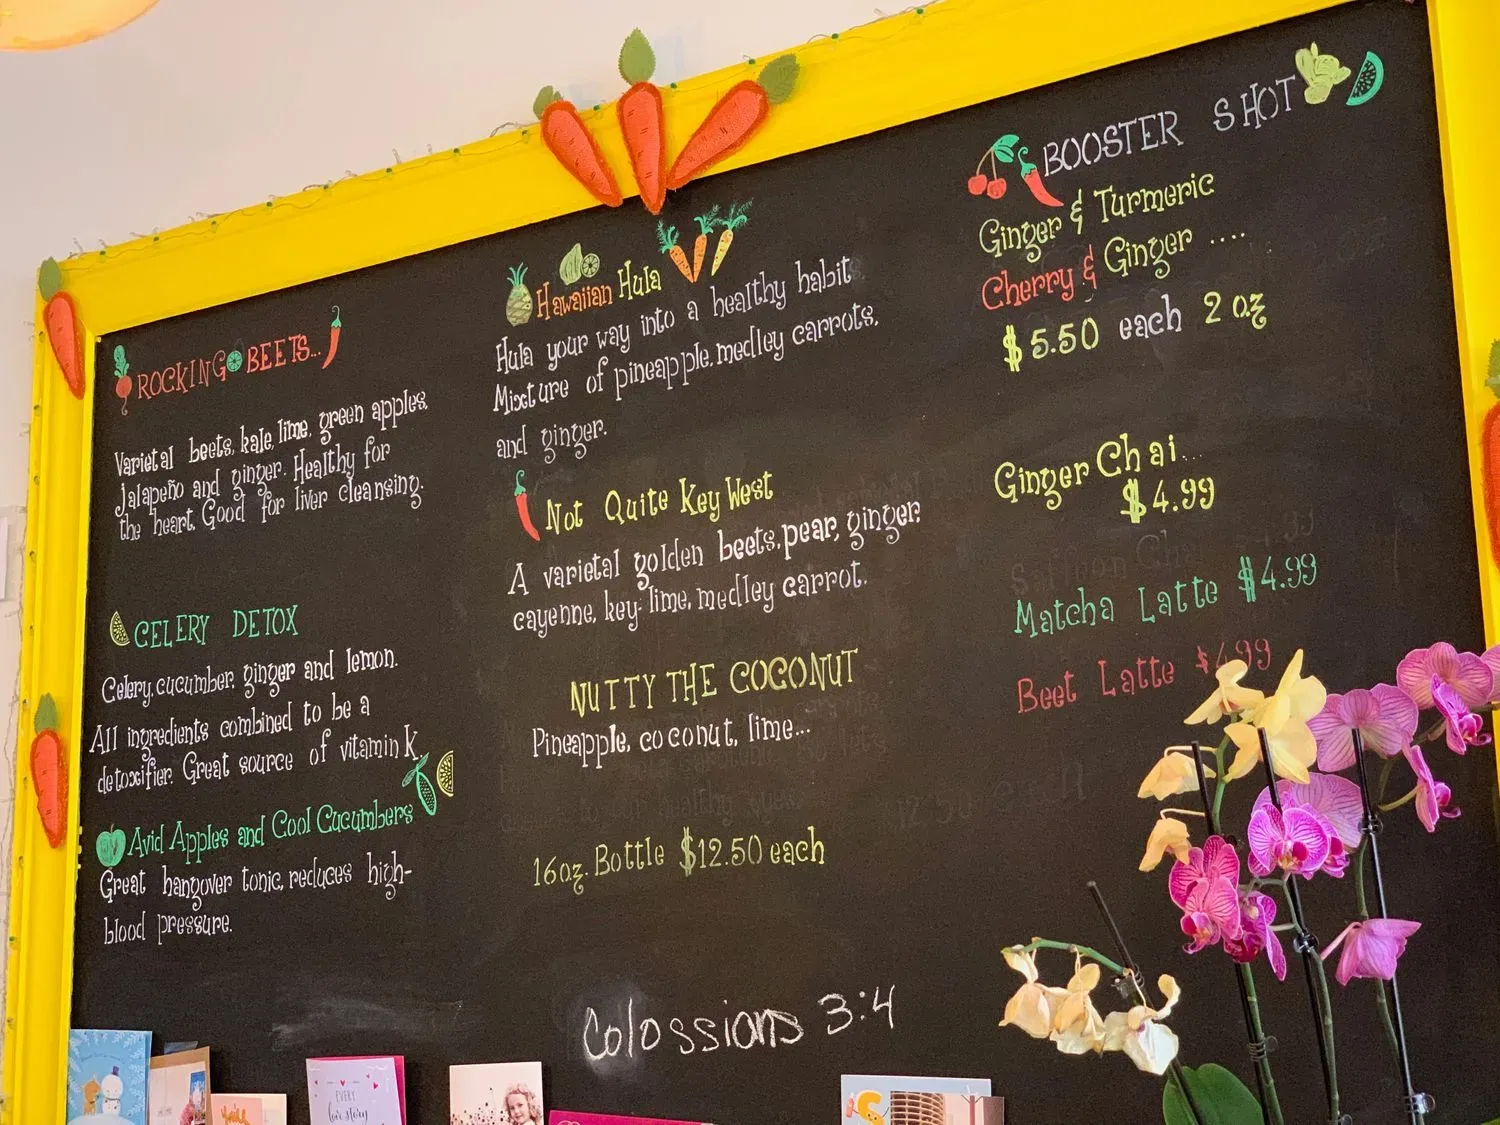 ROCKING BEETS...
Varietal beets, kale, lime, green apples,
jalapeño and ginger. Healthy for
the heart. Good for liver cleansing.
CELERY DETOX
Celery, cucumber, ginger and lemon.
All ingredients combined to be a
detoxifier. Great source of vitamin K.
Avid Apples and Cool Cucumbers
Great hangover tonic, reduces high-
blood pressure.
Hawaiian Hula
Hula your way into a healthy habit
Mixture of pineapple, medley carrots,
and ginger.
Not Quite Key West
A varietal golden beets, pear, ginger,
cayenne, key-lime, medley carrot.
NUTTY THE COCONUT
Pineapple, coconut, lime...
16oz. Bottle $12.50 each
Colossians 3:4
BOOSTER SHOT
Ginger & Turmeric
Cherry & Ginger ....
$5.50 each 2 oz
Ginger Chai...
$4.99
Matcha Latte $4.99
Beet Latte $4.99
EVERY
love story